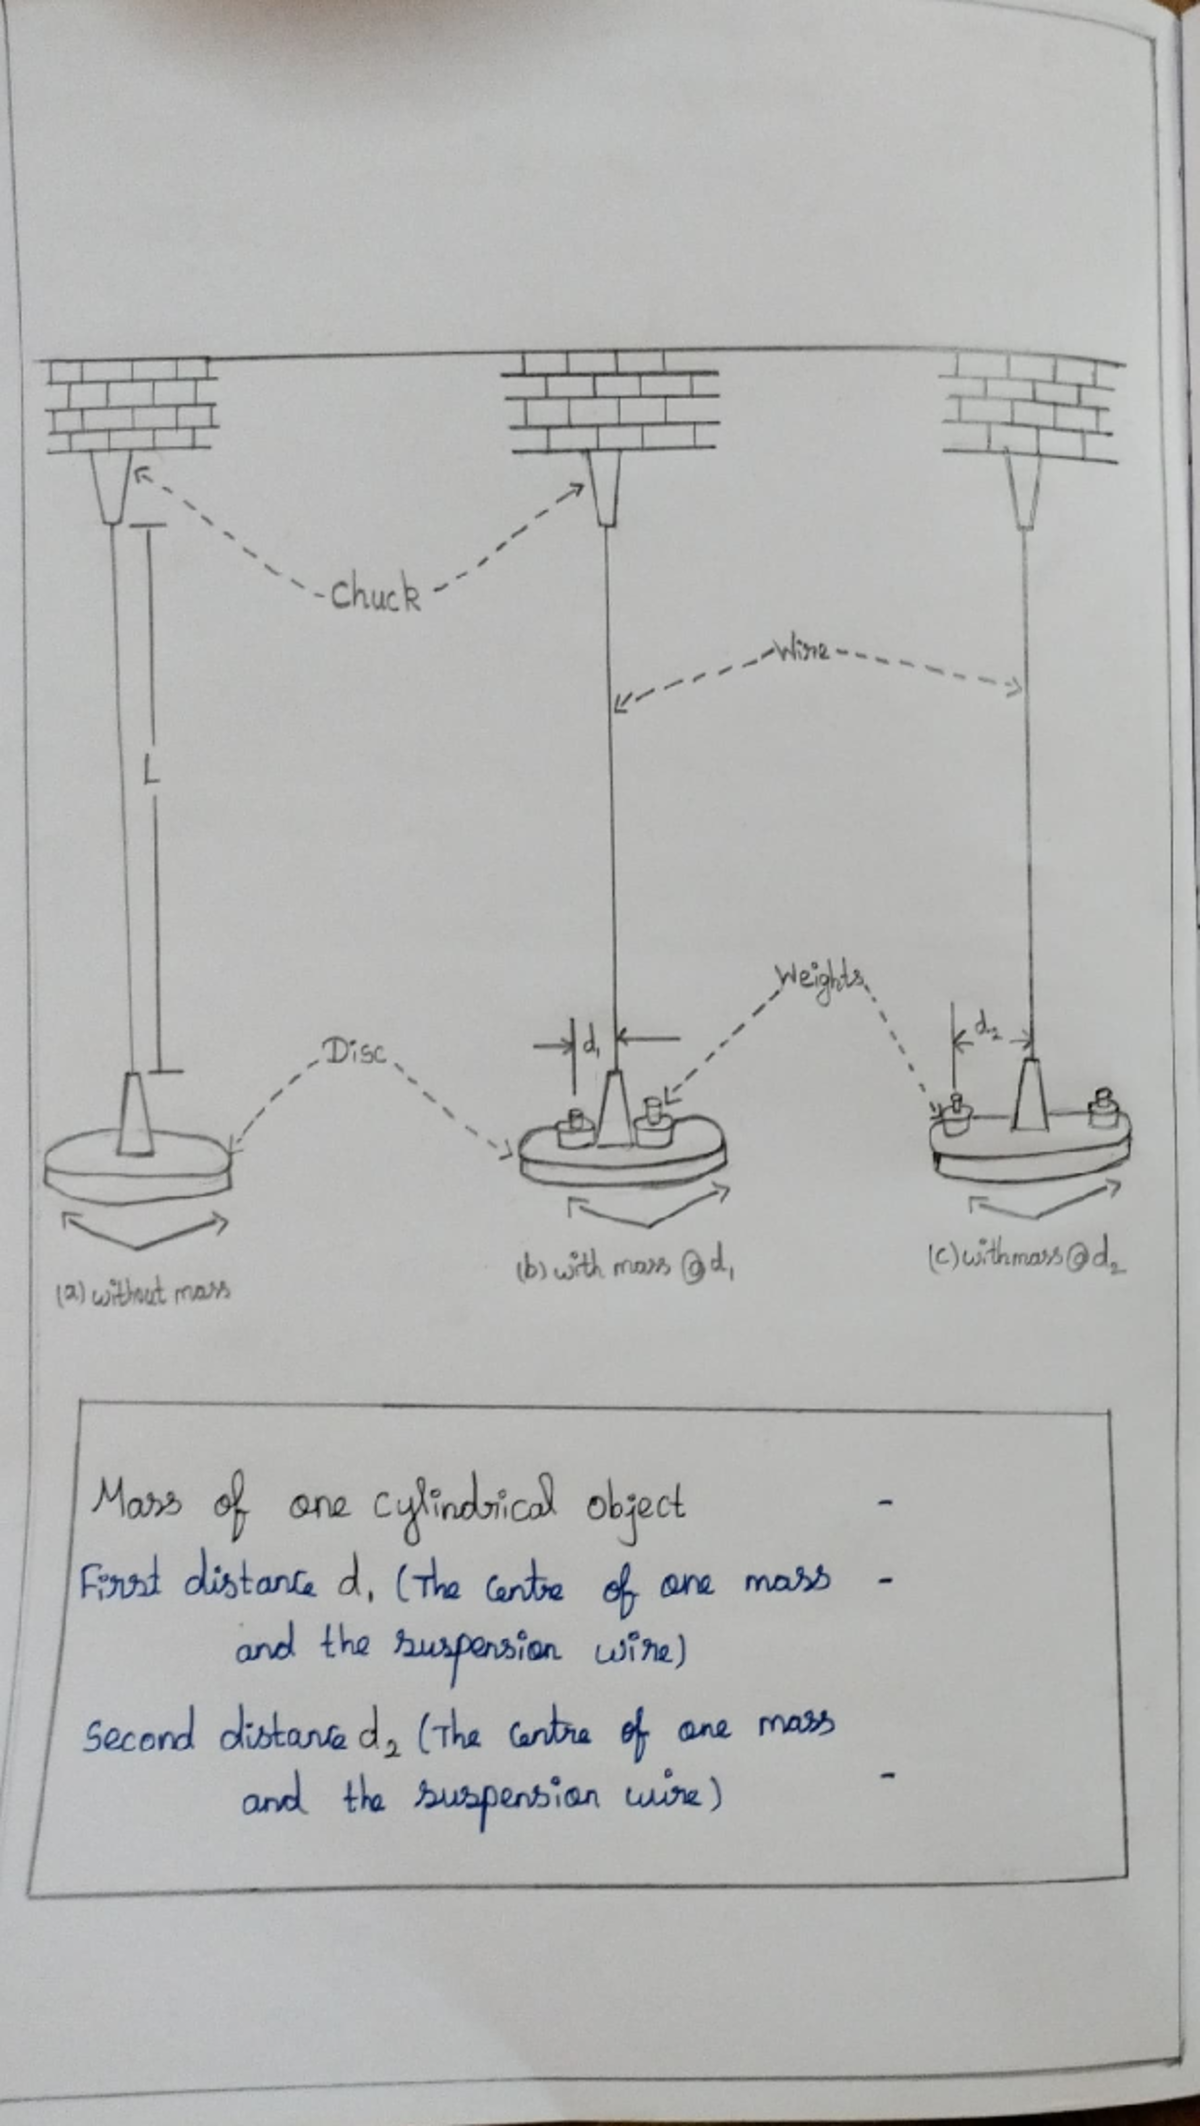 Chuck
Wire
L
Weights
d₁
d₂
Disc
(a) without mass
(b) with mass @ d₁
(c) with mass @ d₂
Mass of one cylindrical object -
First distance d₁ (The centre of one mass -
and the suspension wire)
Second distance d₂ (The centre of one mass
and the suspension wire) -